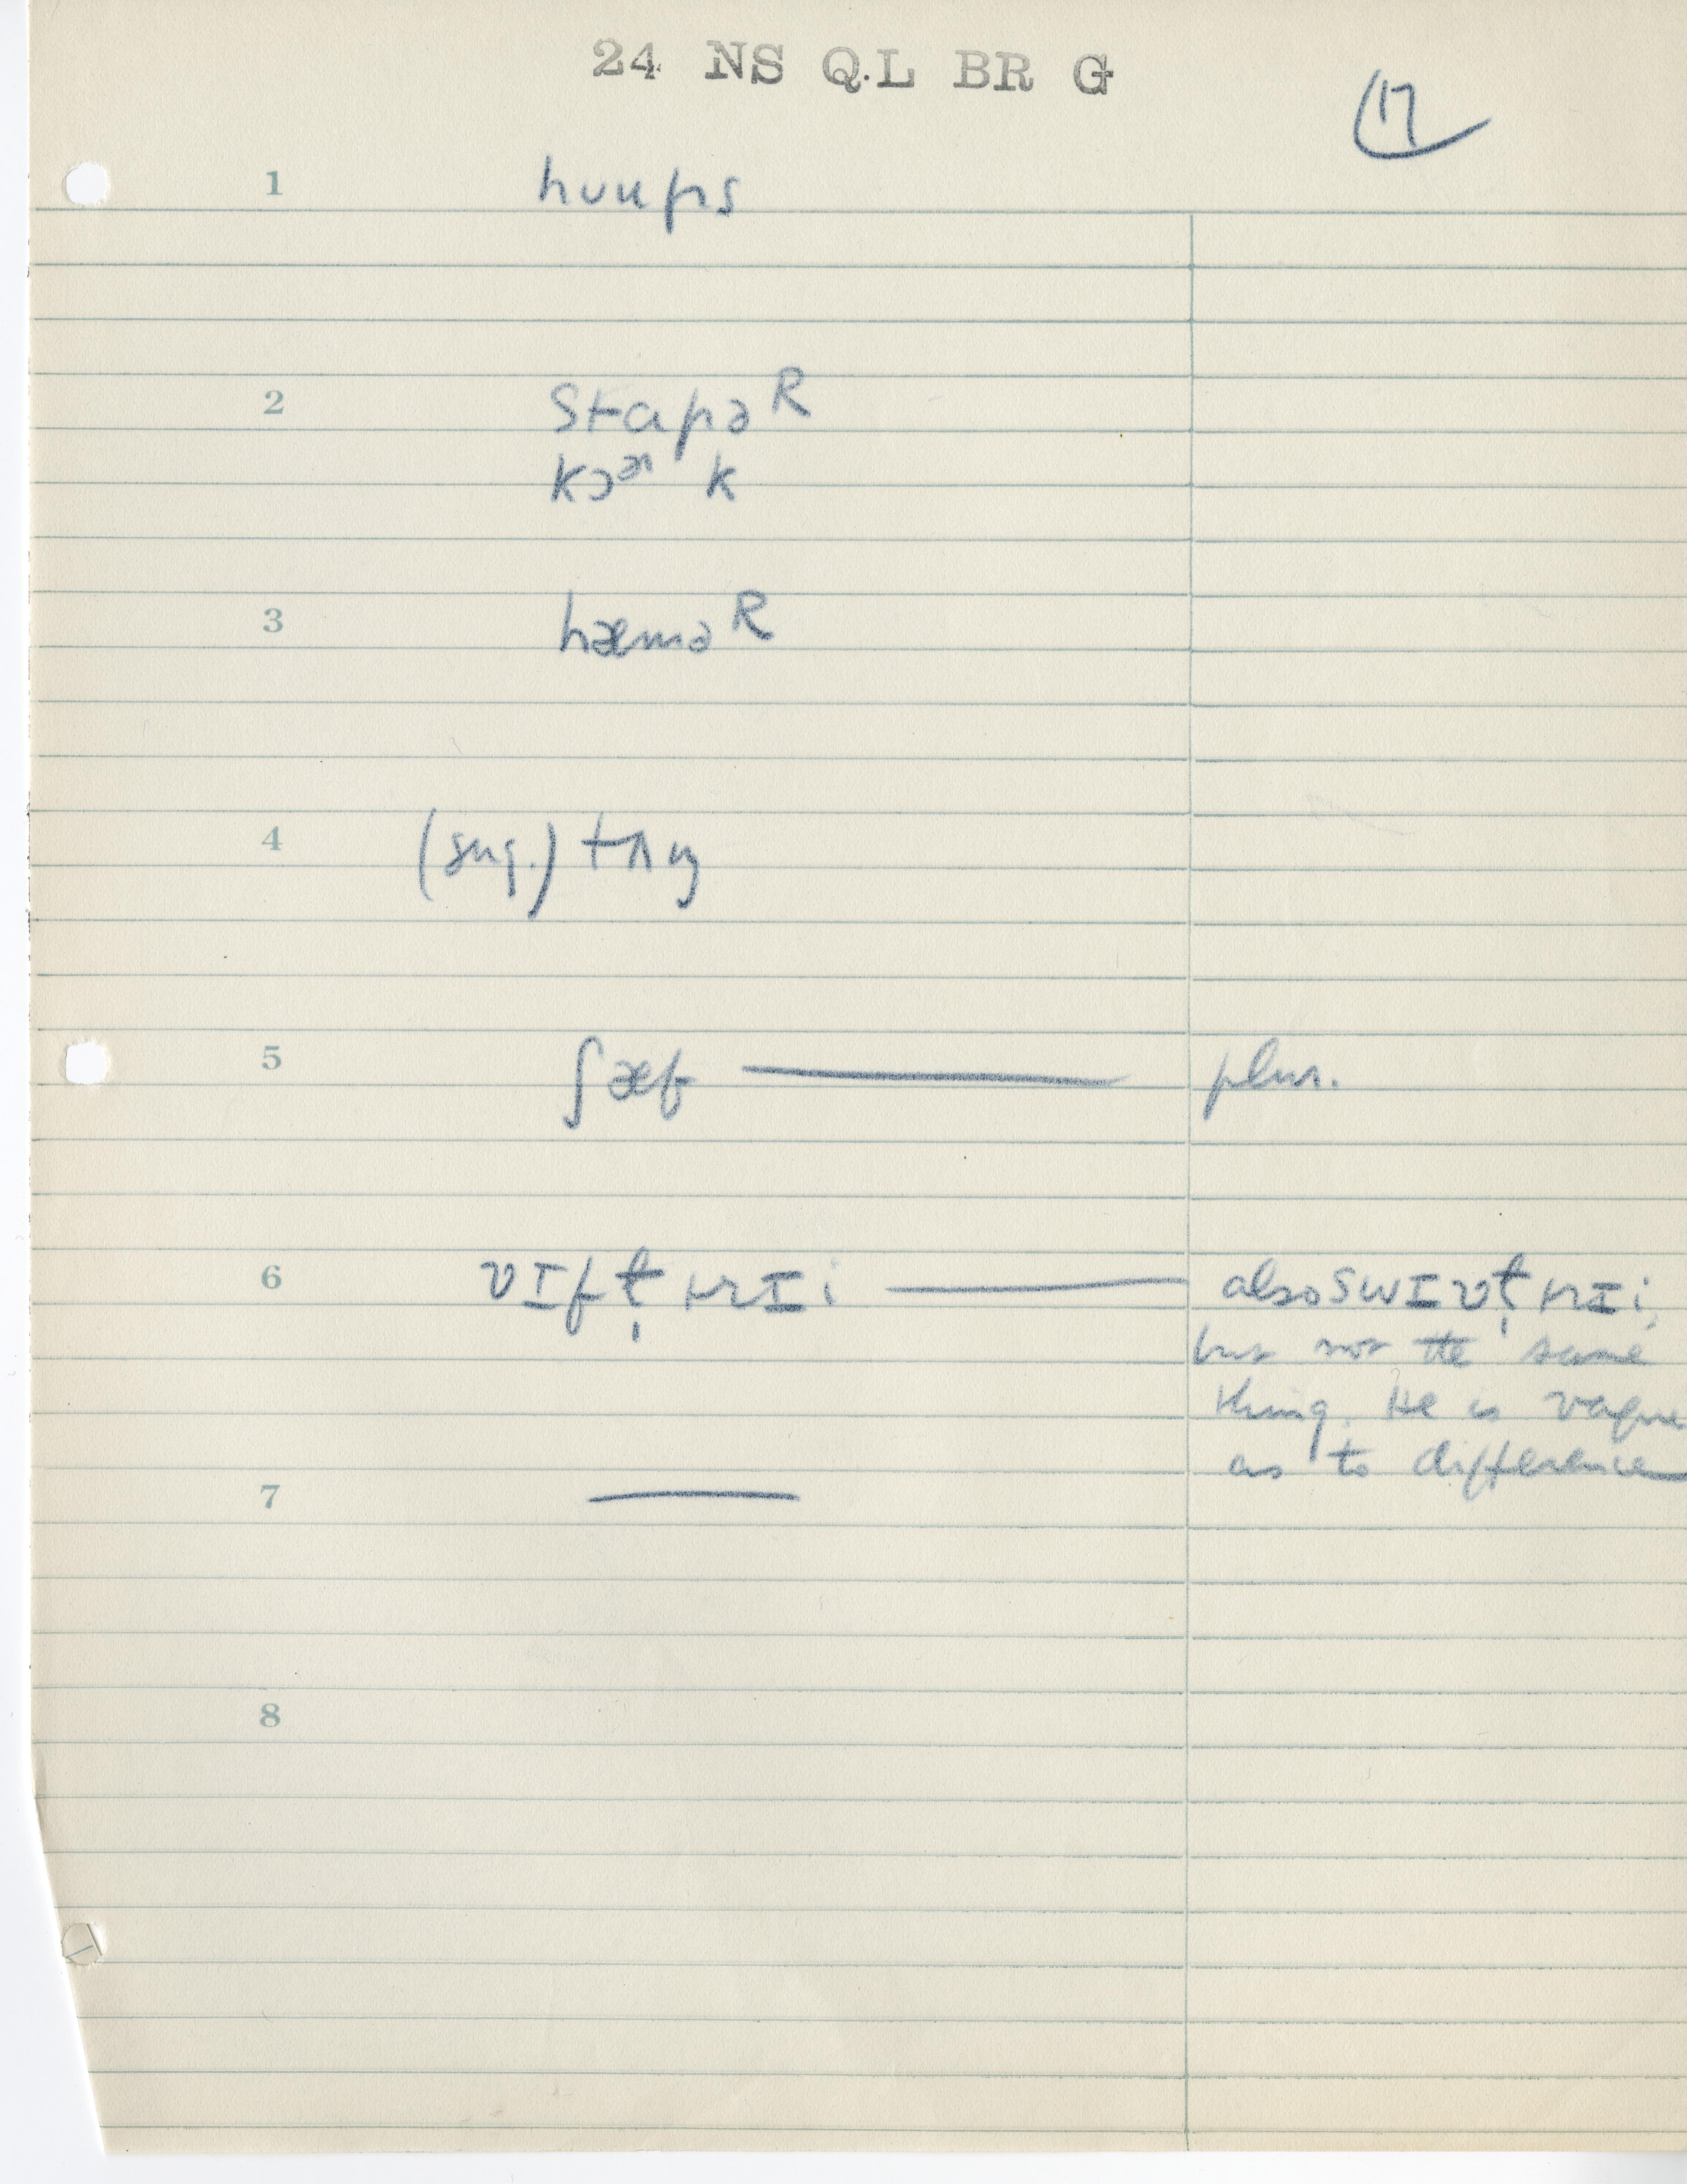 24 NS QL BR G
17
1 hʊups
2 stɑpə R
kɔᵊɹ k
3 hæmə R
4 (sug.) tʌŋ
5 ʃæf — plur.
6 vɪft̬ trɪi — also swɪvt̬ trɪi,
but not the same
thing. He is vague
as to difference
7 —
8